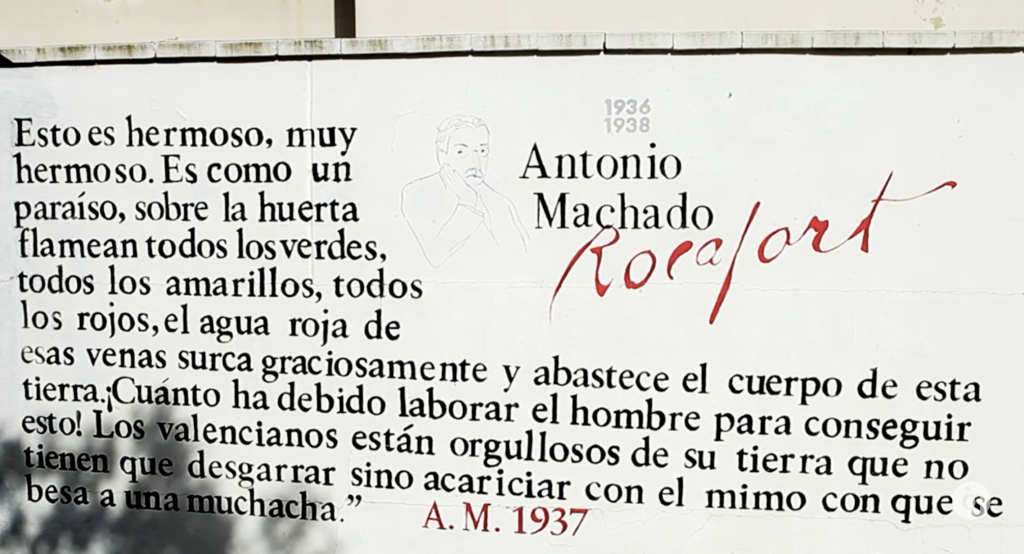 Esto es hermoso, muy
hermoso. Es como un
paraíso, sobre la huerta
flamean todos los verdes,
todos los amarillos, todos
los rojos, el agua roja de
esas venas surca graciosamente y abastece el cuerpo de esta
tierra.¡Cuánto ha debido laborar el hombre para conseguir
esto! Los valencianos están orgullosos de su tierra que no
tienen que desgarrar sino acariciar con el mimo con que se
besa a una muchacha.”
A. M. 1937
1936
1938
Antonio
Machado
Rocafort